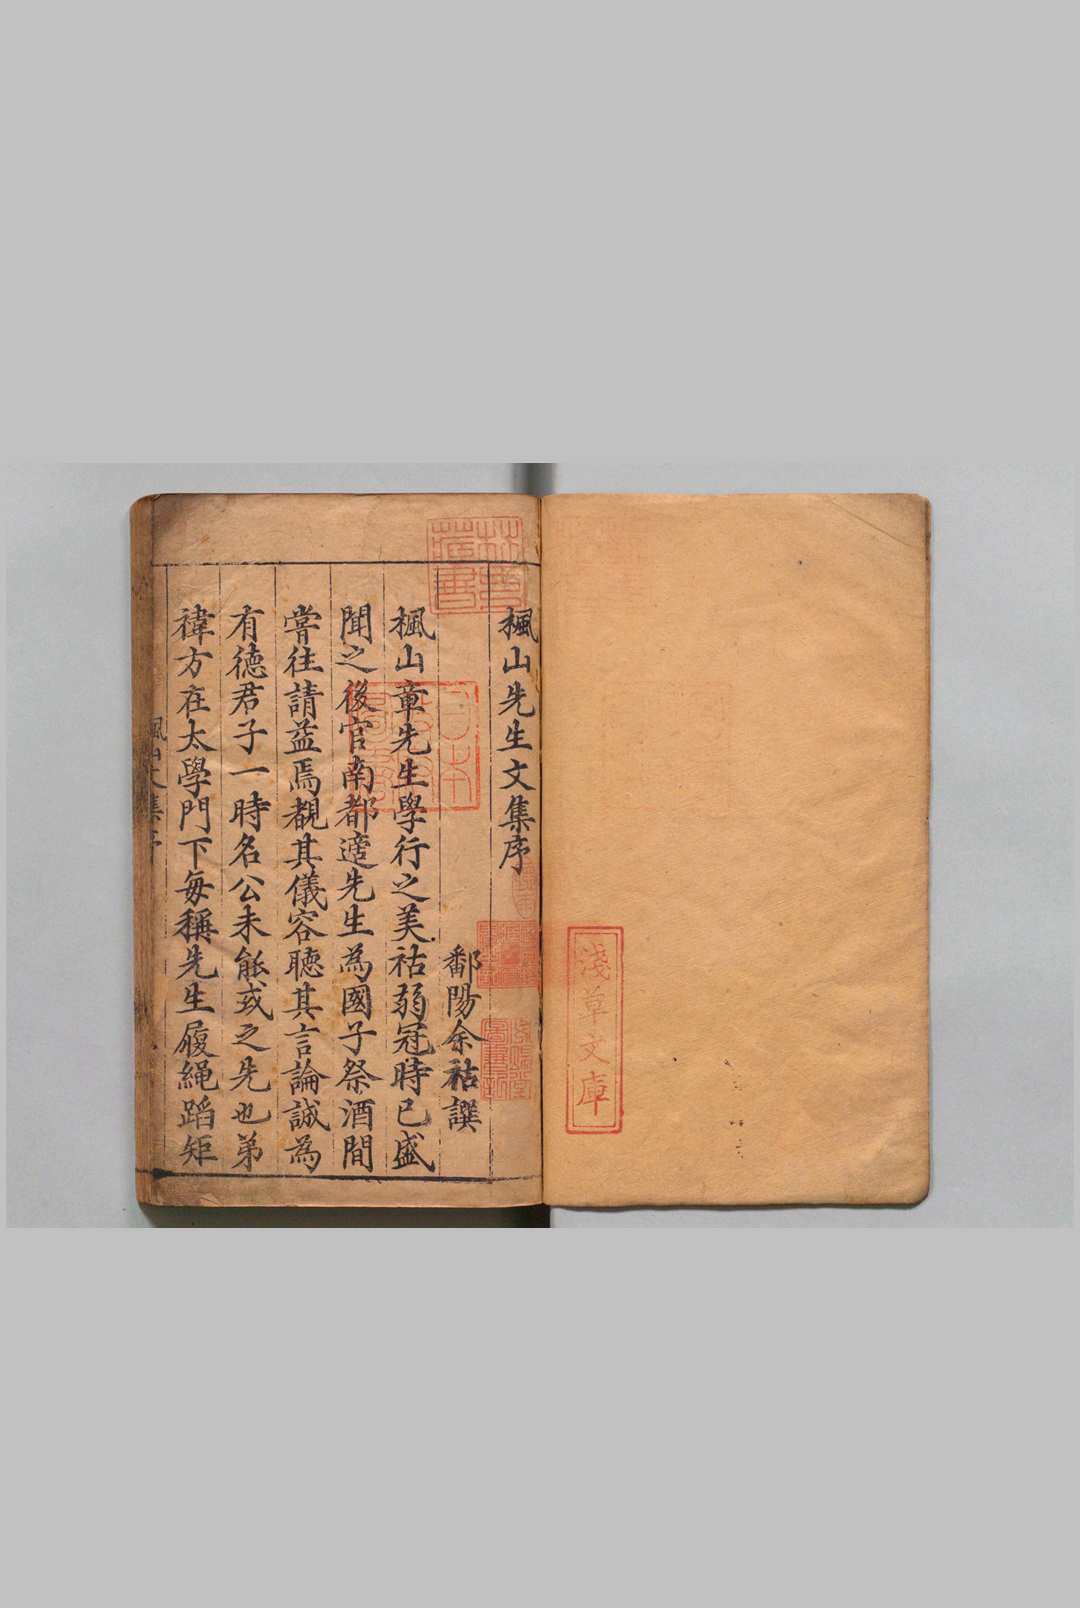 淺草文庫
楓山先生文集序
鄱陽余祜譔
楓山章先生學行之美祜弱冠時已盛
聞之後官南都適先生為國子祭酒間
嘗往請益焉覩其儀容聽其言論誠為
有德君子一時名公未能或之先也弟
禕方在太學門下每稱先生履繩蹈矩
林氏藏書
日本